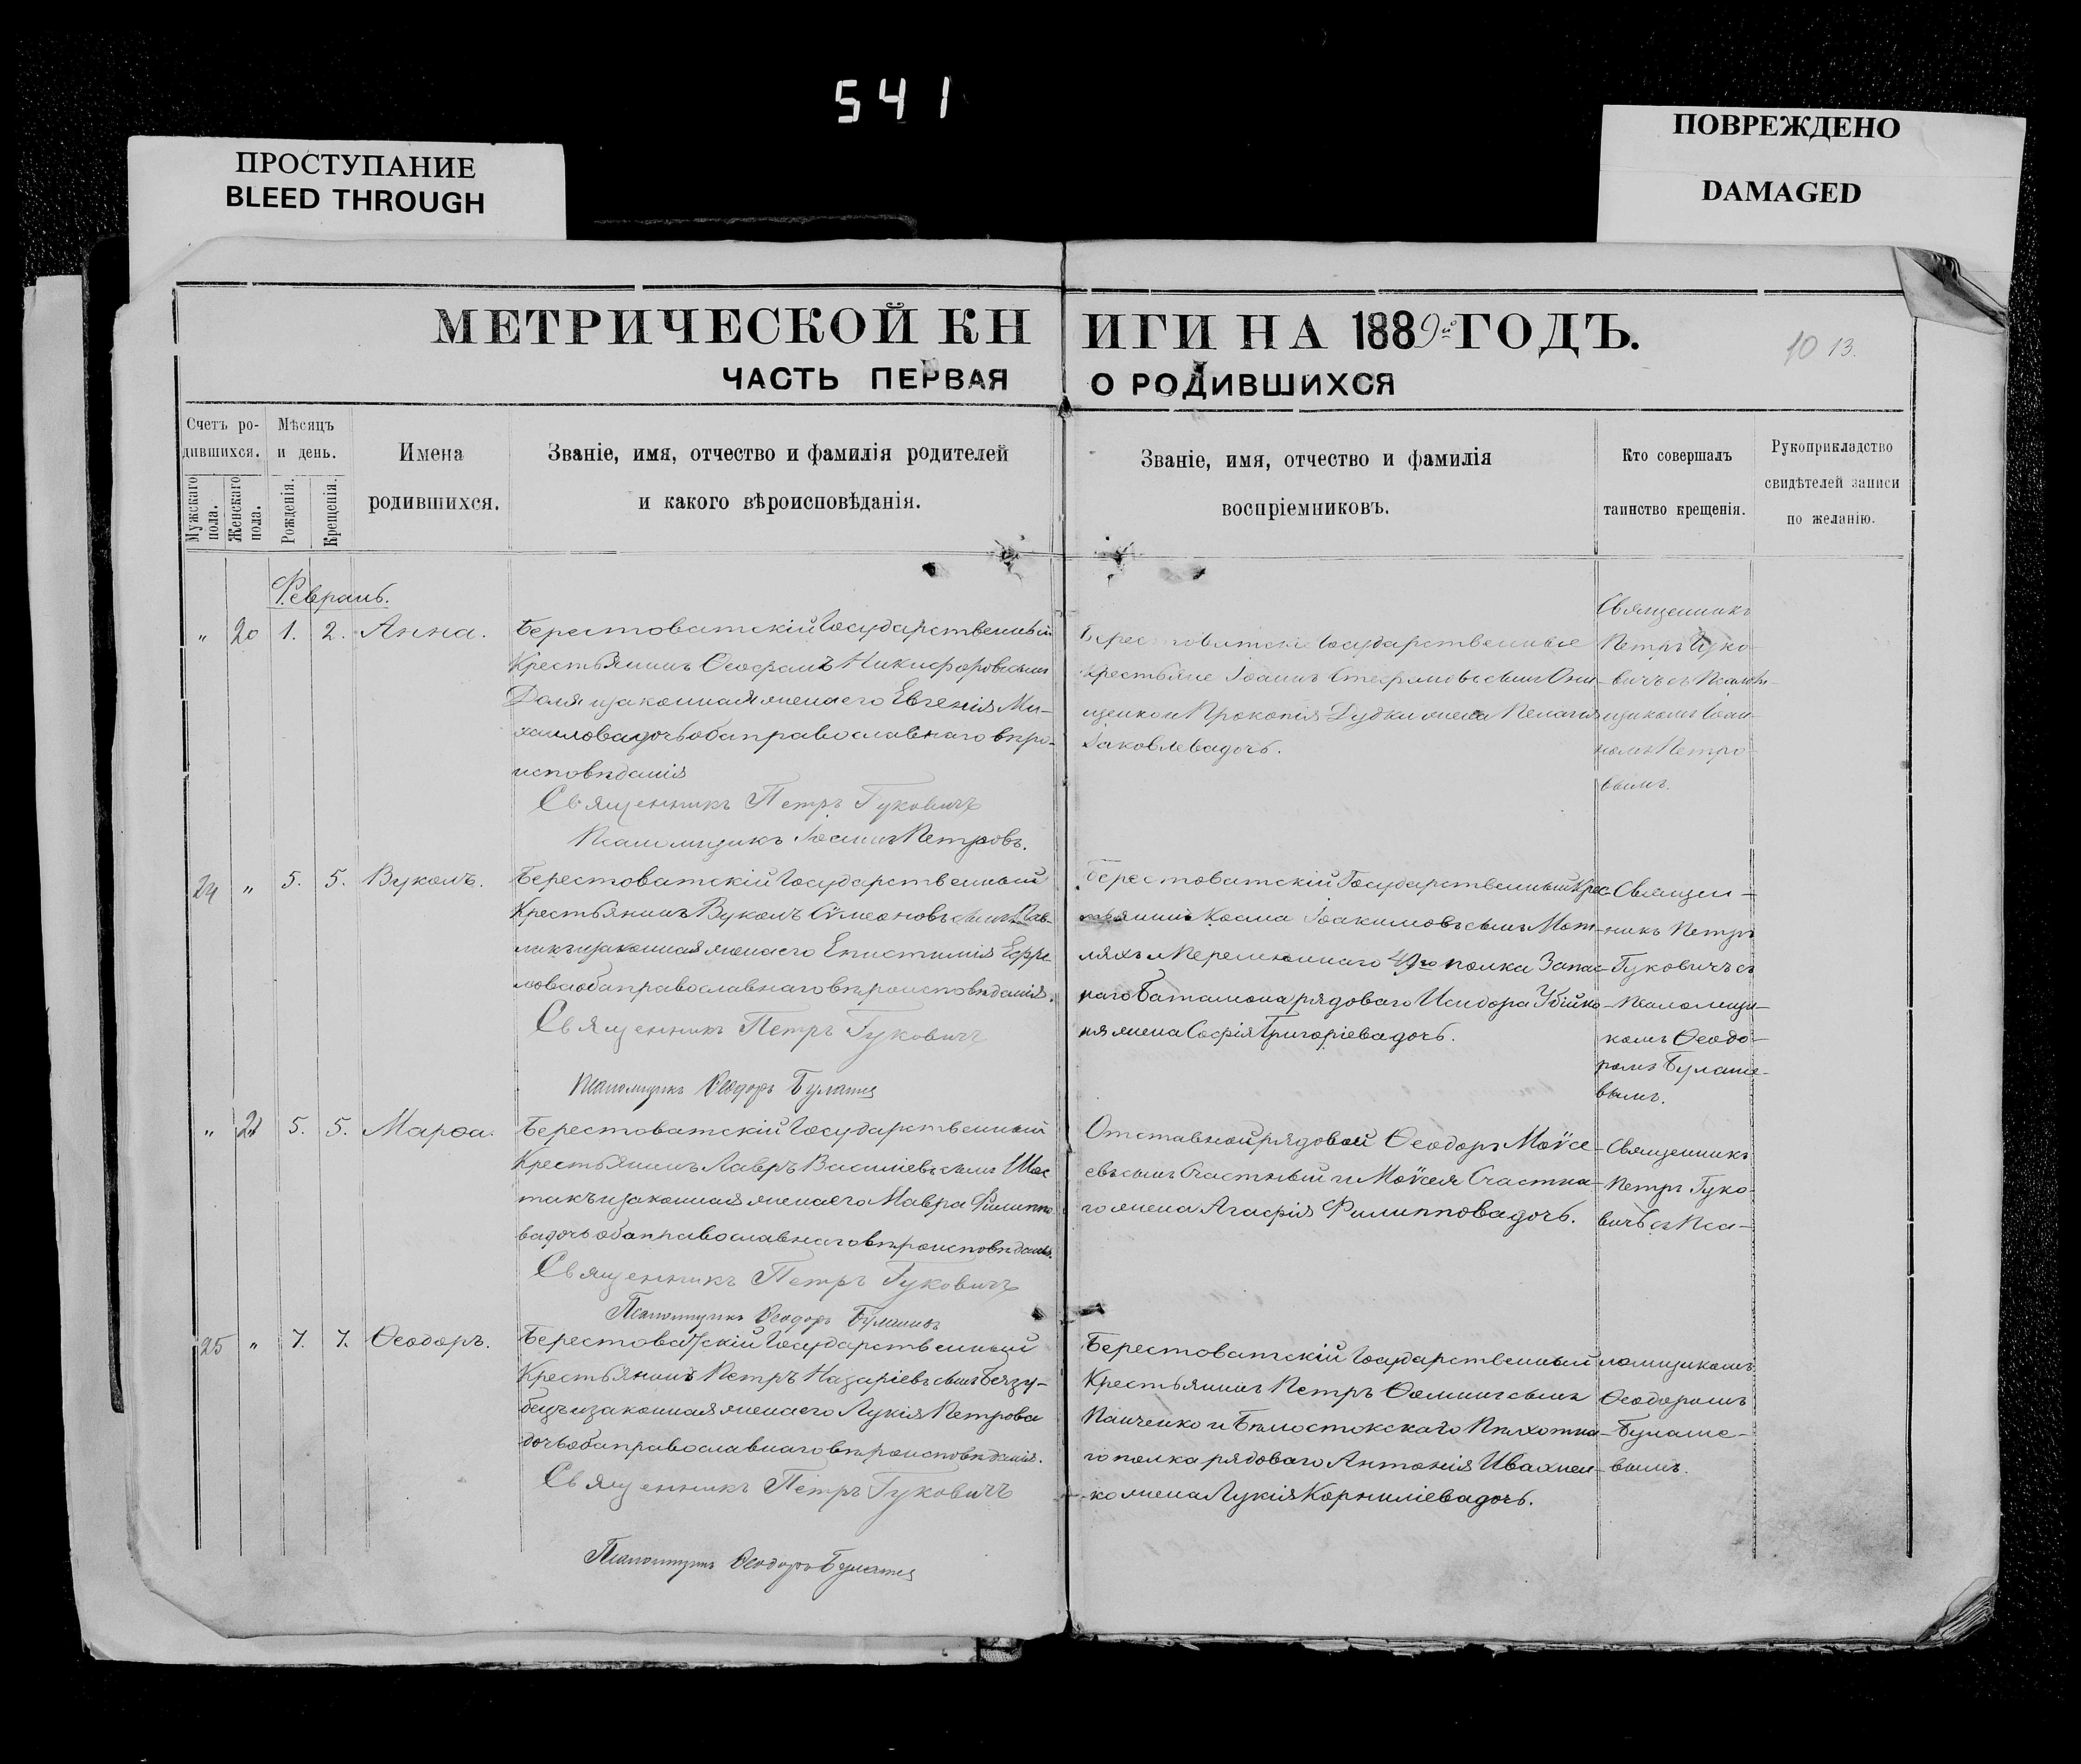 541
ПРОСТУПАНИЕ
BLEED THROUGH
ПОВРЕЖДЕНО
DAMAGED
МЕТРИЧЕСКОЙ КНИГИ НА 1889й ГОДЪ.
10 13.
ЧАСТЬ ПЕРВАЯ О РОДИВШИХСЯ
Счетъ родившихся.
Мужскаго пола.
Женскаго пола.
Мѣсяцъ и день.
Рожденія.
Крещенія.
Имена
родившихся.
Званіе, имя, отчество и фамилія родителей
и какого вѣроисповѣданія.
Званіе, имя, отчество и фамилія
воспріемниковъ.
Кто совершалъ
таинство крещенія.
Рукоприкладство
свидѣтелей записи
по желанію.
Февраль.
" 20 1. 2. Анна.
Берестоватскій Государственный
Крестьянинъ Ѳеофанъ Никифоровъ сынъ
Доля и законная жена его Евгенія Ми-
хаилова дочь оба православнаго вѣро-
исповѣданія
Священникъ Петръ Гуковичъ
Псаломщикъ Іоаннъ Петровъ.
Берестоватскіе Государственные
Крестьяне Іоаннъ Стефановъ сынъ Они-
щенко и Прокопія Дудки жена Пелагія
Іаковлева дочь.
Священникъ
Петръ Гуко-
вичъ съ Псалом-
щикомъ Іоан-
номъ Петро-
вымъ.
24 " 5. 5. Вуколъ.
Берестоватскій Государственный
Крестьянинъ Вуколъ Сѵмеоновъ сынъ Пав-
ликъ и законная жена его Епистимія Ефре-
мова оба православнаго вѣроисповѣданія.
Священникъ Петръ Гуковичъ
Псаломщикъ Ѳеодоръ
Берестоватскій Государственный Крес-
тьянинъ Косма Іоакимовъ сынъ Мот-
ляхъ и 49го полка Запас-
наго Баталіона рядоваго Исидора
жена Софія Григоріева дочь.
Священ-
никъ Петръ
Гуковичъ съ
Псаломщи-
комъ Ѳеодо-
ромъ Булаше-
вымъ.
" 21 5. 5. Марѳа.
Берестоватскій Государственный
Крестьянинъ Лавръ Василіевъ сынъ Шос-
такъ и законная жена его Мавра Филиппо-
ва дочь оба православнаго вѣроисповѣданія.
Священникъ Петръ Гуковичъ
Псаломщикъ Ѳеодоръ
Отставной рядовой Ѳеодоръ Моѵсе-
евъ сынъ Счастный и Моѵсея Счастна-
го жена Агафія Филиппова дочь.
Священникъ
Петръ Гуко-
вичъ съ Пса-
25 " 7. 7. Ѳеодоръ.
Берестоватскій Государственный
Крестьянинъ Петръ Назаріевъ сынъ Беззу-
бецъ и законная жена его Лукія Петрова
дочь оба православнаго вѣроисповѣданія.
Священникъ Петръ Гуковичъ
Псаломщикъ Ѳеодоръ
Берестоватскій Государственный
Крестьянинъ Петръ Ѳоминъ сынъ
Панченко и Бѣлостокскаго Пѣхотна-
го полка рядоваго Антонія Ивахнен-
ко жена Лукія Корниліева дочь.
ломщикомъ
Ѳеодоромъ
Булаше-
вымъ.